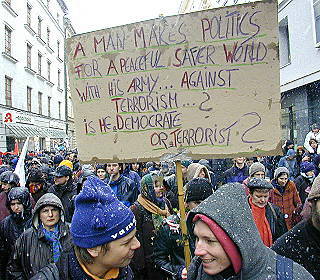 A MAN MAKES POLITICS
FOR A PEACEFUL SAFER WORLD
WITH HIS ARMY... AGAINST
TERRORISM...?
IS HE DEMOCRATE
OR TERRORIST?